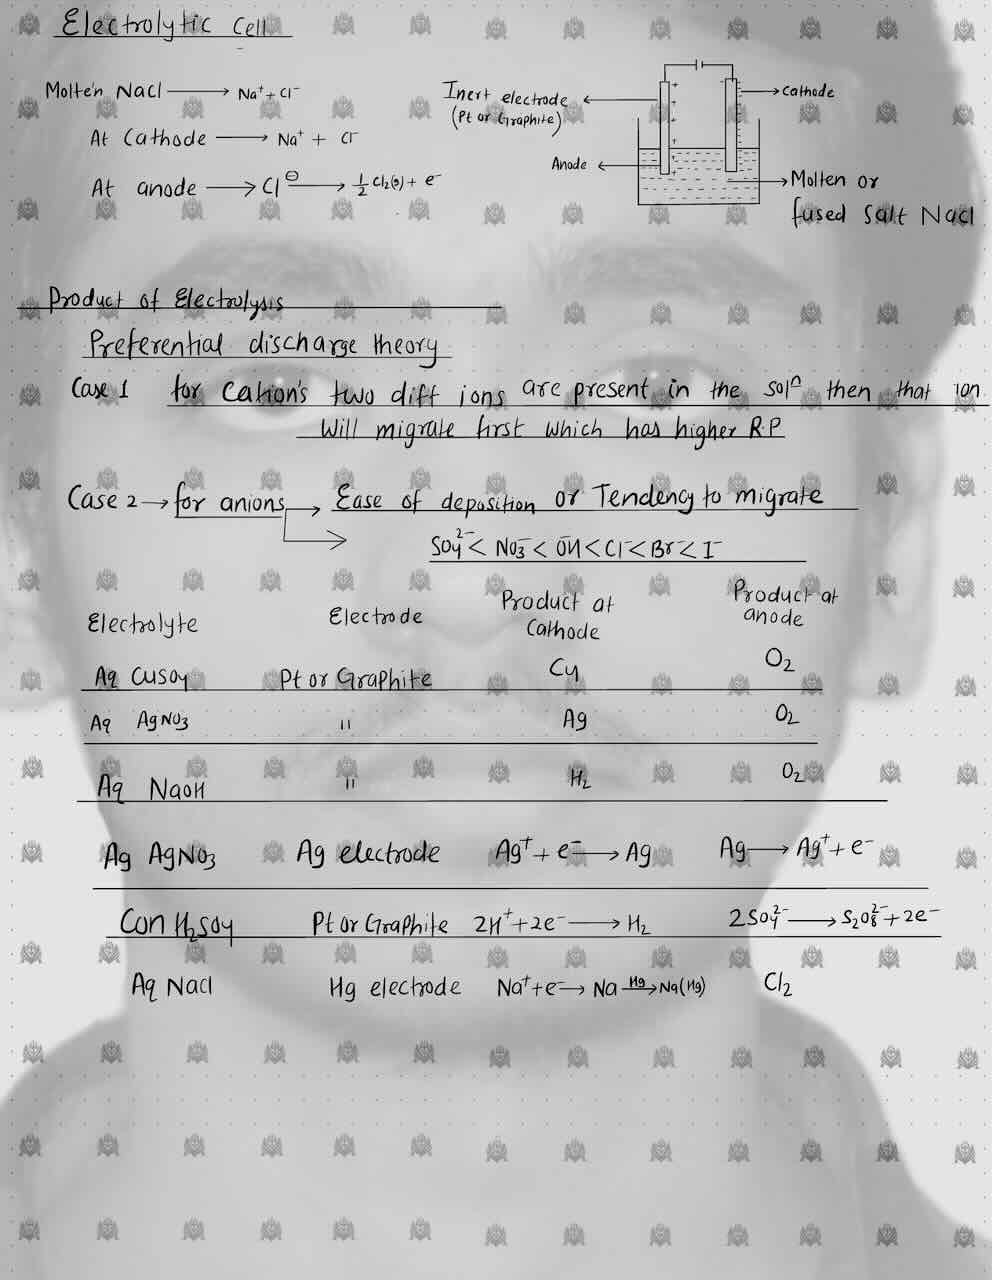 Electrolytic Cell
Molten NaCl ⟶ Na⁺ + Cl⁻
At Cathode ⟶ Na⁺ + Cl⁻
At anode ⟶ Cl⊖ ⟶ 1/2 Cl₂(g) + e⁻
Inert electrode
(Pt or Graphite)
Anode
Cathode
Molten or
fused Salt NaCl
Product of Electrolysis
Preferential discharge theory
Case 1 for Cation's two diff ions are present in the solⁿ then that ion
Will migrate first which has higher R.P
Case 2 → for anions → Ease of deposition or Tendency to migrate
SO₄²⁻ < NO₃⁻ < OH⁻ < Cl⁻ < Br⁻ < I⁻
Electrolyte Electrode Product at Cathode Product at anode
Aq CuSO₄ Pt or Graphite Cu O₂
Aq AgNO₃ " Ag O₂
Aq NaOH " H₂ O₂
Aq AgNO₃ Ag electrode Ag⁺ + e⁻ ⟶ Ag Ag ⟶ Ag⁺ + e⁻
Con H₂SO₄ Pt or Graphite 2H⁺ + 2e⁻ ⟶ H₂ 2SO₄²⁻ ⟶ S₂O₈²⁻ + 2e⁻
Aq NaCl Hg electrode Na⁺ + e⁻ ⟶ Na —Hg→ Na(Hg) Cl₂